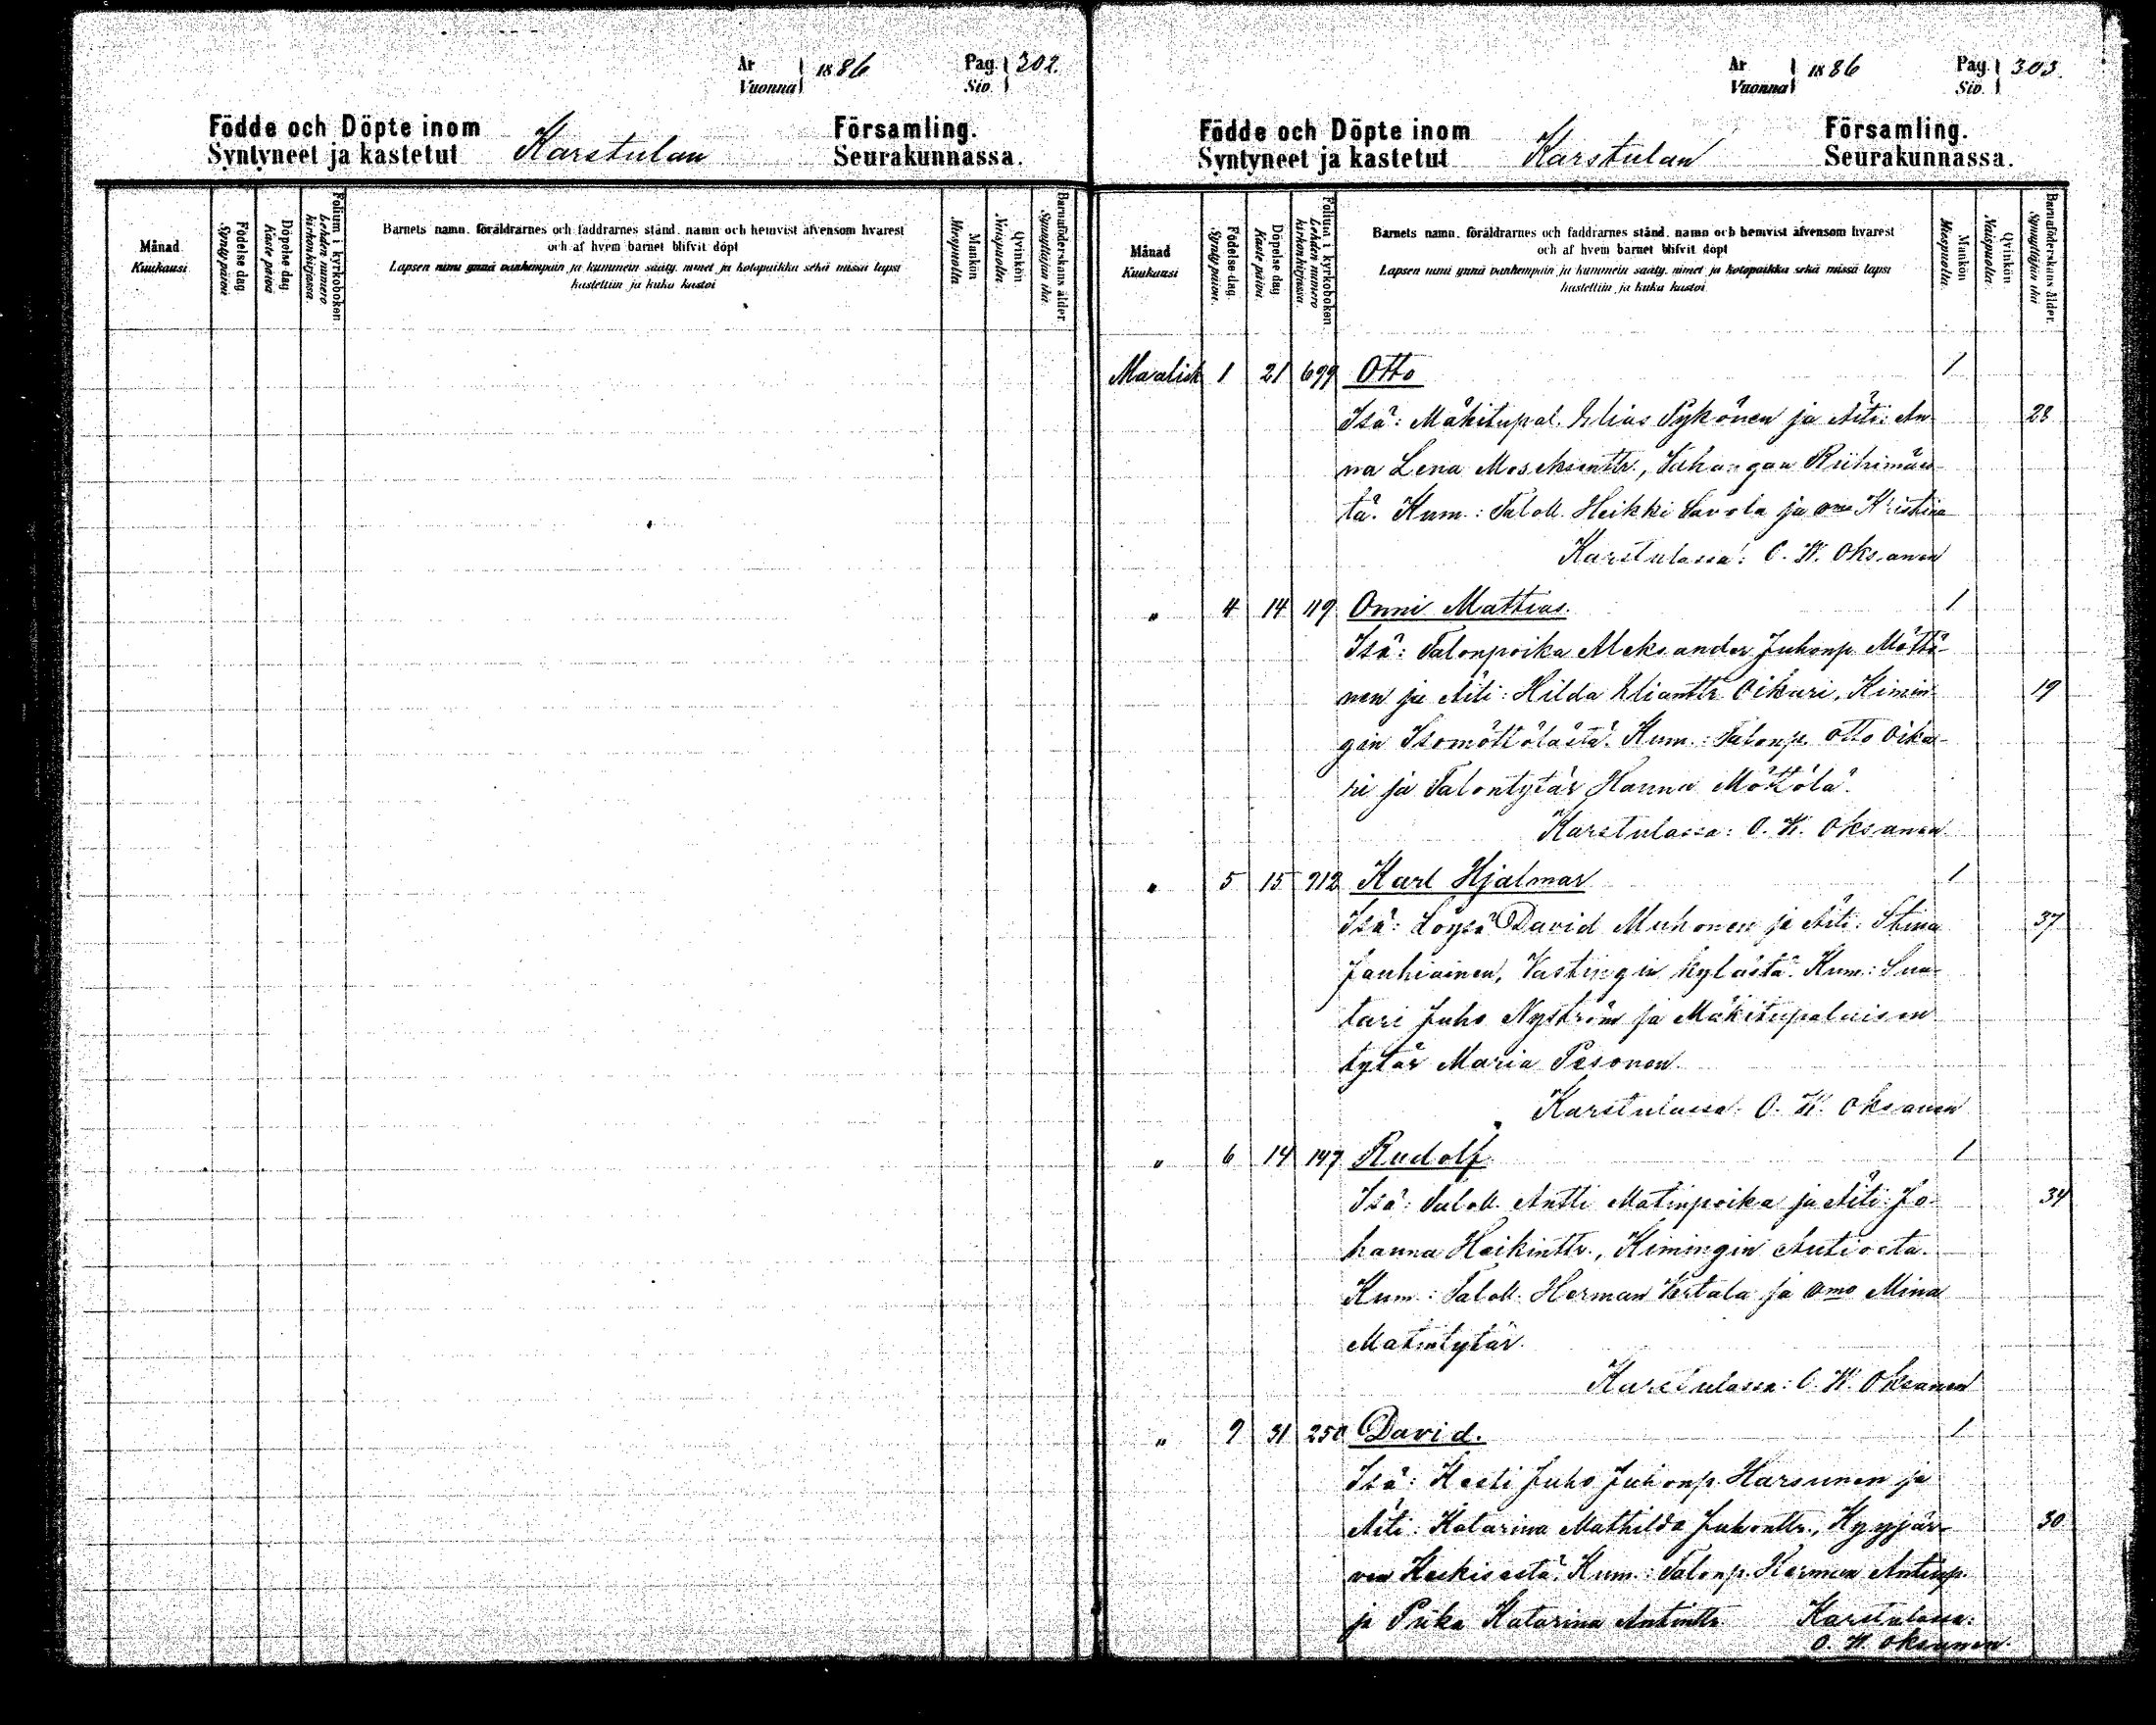 År Vuonna 1886 Pag. Siv. 302.
Födde och Döpte inom Församling.
Syntyneet ja kastetut Karstulan Seurakunnassa.
Månad Kuukausi
Födelse dag. Synty päivä
Döpelse dag. Kaste päivä
Folium i kyrkoboken Lehden numero kirkonkirjassa.
Barnets namn, föräldrarnes och faddrarnes stånd, namn och hemvist äfvensom hvarest
och af hvem barnet blifvit döpt
Lapsen nimi ynnä vanhempain ja kummein sääty, nimet ja kotopaikka sekä missä lapsi
kastettiin ja kuka kastoi
Mankön Miespuolta
Qvinkön Naispuolta
Barnaföderskans ålder. Synnyttäjän ikä
År Vuonna 1886 Pag. Siv. 303.
Födde och Döpte inom Församling.
Syntyneet ja kastetut Karstulan Seurakunnassa.
Månad Kuukausi
Födelse-dag. Synty päivä.
Döpelse dag Kaste päivä
Folium i kyrkoboken Lehden numero kirkonkirjassa.
Barnets namn, föräldrarnes och faddrarnes stånd, namn och hemvist äfvensom hvarest
och af hvem barnet blifvit döpt
Lapsen nimi ynnä vanhempain ja kummein sääty, nimet ja kotopaikka sekä missä lapsi
kastettiin ja kuka kastoi
Mankön Miespuolta
Qvinkön Naispuolta
Barnaföderskans ålder. Synnyttäjän ikä
Maalisk 1 21 699 Otto 1
Isä: Mäkitupal. Elias Pykönen ja Äiti: An- 28
na Lena Moseksentltr., Vahangan Riihimäes-
tä. Kum.: Taloll. Heikki Savola ja omo Kristina
Karstulassa: O. W. Oksanen
" 4 14 119 Onni Mattias. 1
Isä: Talonpoika Aleksander Juhonp. Möttö-
nen ja Äiti: Hilda Elianttr. Oikari, Kimin- 19
gin Isomöttölästä. Kum.: Talonp. Otto Oika-
ri ja Talontytär Hanna Möttölä.
Karstulassa: O. W. Oksanen
" 5 15 712 Karl Hjalmar 1
Isä: Löysä David Muhonen ja Äiti: Stina 37
Jauhiainen, Vastingin kylästä. Kum.: Suu-
tari Juho Nyström ja Mäkitupalaisen
tytär Maria Pesonen.
Karstulassa: O. W. Oksanen
" 6 14 147 Rudolf 1
Isä: Taloll. Antti Matinpoika ja Äiti: Jo- 34
hanna Heikinttr., Kimingin Autiosta.
Kum.: Taloll. Herman Vertala ja omo Mina
Matintytär.
Karstulassa: O. W. Oksanen
" 9 31 250 David. 1
Isä: Kesti Juho Juhonp. Harsunen ja
Äiti: Katarina Mathilda Juhonttr., Kyyjär- 30
ven Keskisestä. Kum.: Talonp. Herman Antinp.
ja Piika Katarina Antinttr. Karstulassa:
O. W. Oksanen.